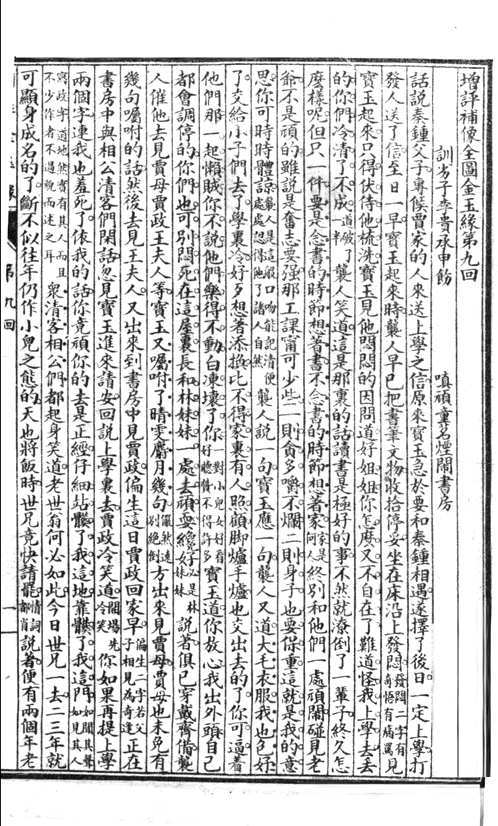 增評補像全圖金玉緣第九回
訓劣子李貴承申飭　嗔頑童茗煙鬧書房
話說秦鍾父子專候賈家的人來送上學之信原來寶玉急於要和秦鍾相遇遂擇了後日一定上學打
發人送了信至日一早寶玉起來時襲人早已把書筆文物收拾停妥坐在床沿上發悶發悶二字有見
寶玉起來只得伏侍他梳洗寶玉見他悶悶的因問道好姐姐你怎麼又不自在了難道怪我上學去丟
的你們冷清了不成道破襲人笑道這是那裏的話讀書是極好的事不然就潦倒了一輩子終久怎
麼樣呢但只一件要是念書的時節想着書不念書的時節想着家家是何人終別和他們一處頑鬧碰見老
爺不是頑的雖說是奮志要强那工課甯可少些一則貪多嚼不爛二則身子也要保重這就是我的意
思你可時時體諒襲人說一句寶玉應一句襲人又道大毛衣服我也包好
了交給小子們去了學裏冷好歹想着添換比不得家裏有人照顧脚爐手爐也交出去的了你可逼着
他們那一起懶賊你不說他們樂得不動白凍壞了你寶玉道你放心我出外頭自己
都會調停的你們也可別悶死在這屋裏長和林妹妹一處去頑耍纔好必是林妹妹說着俱已穿戴齊備襲
人催他去見賈母賈政王夫人等寶玉又囑咐了晴雯麝月幾句方出來見賈母賈母也未免有
幾句囑咐的話然後去見王夫人又出來到書房中見賈政偏生這日賈政回家早偏生二字若父子相見為奇逢正在
書房中與相公清客們閑話忽見寶玉進來請安回說上學裏去賈政冷笑道開場先冷笑你如果再提上學
兩個字連我也羞死了依我的話你竟頑你的去是正經仔細站髒了我這地靠髒了我這門如聞其聲如見其人
衆清客相公們都起身笑道老世翁何必如此今日世兄一去二三年就
可顯身成名的了斷不似往年仍作小兒之態的天也將飯時世兄竟快請罷說着便有兩個年老